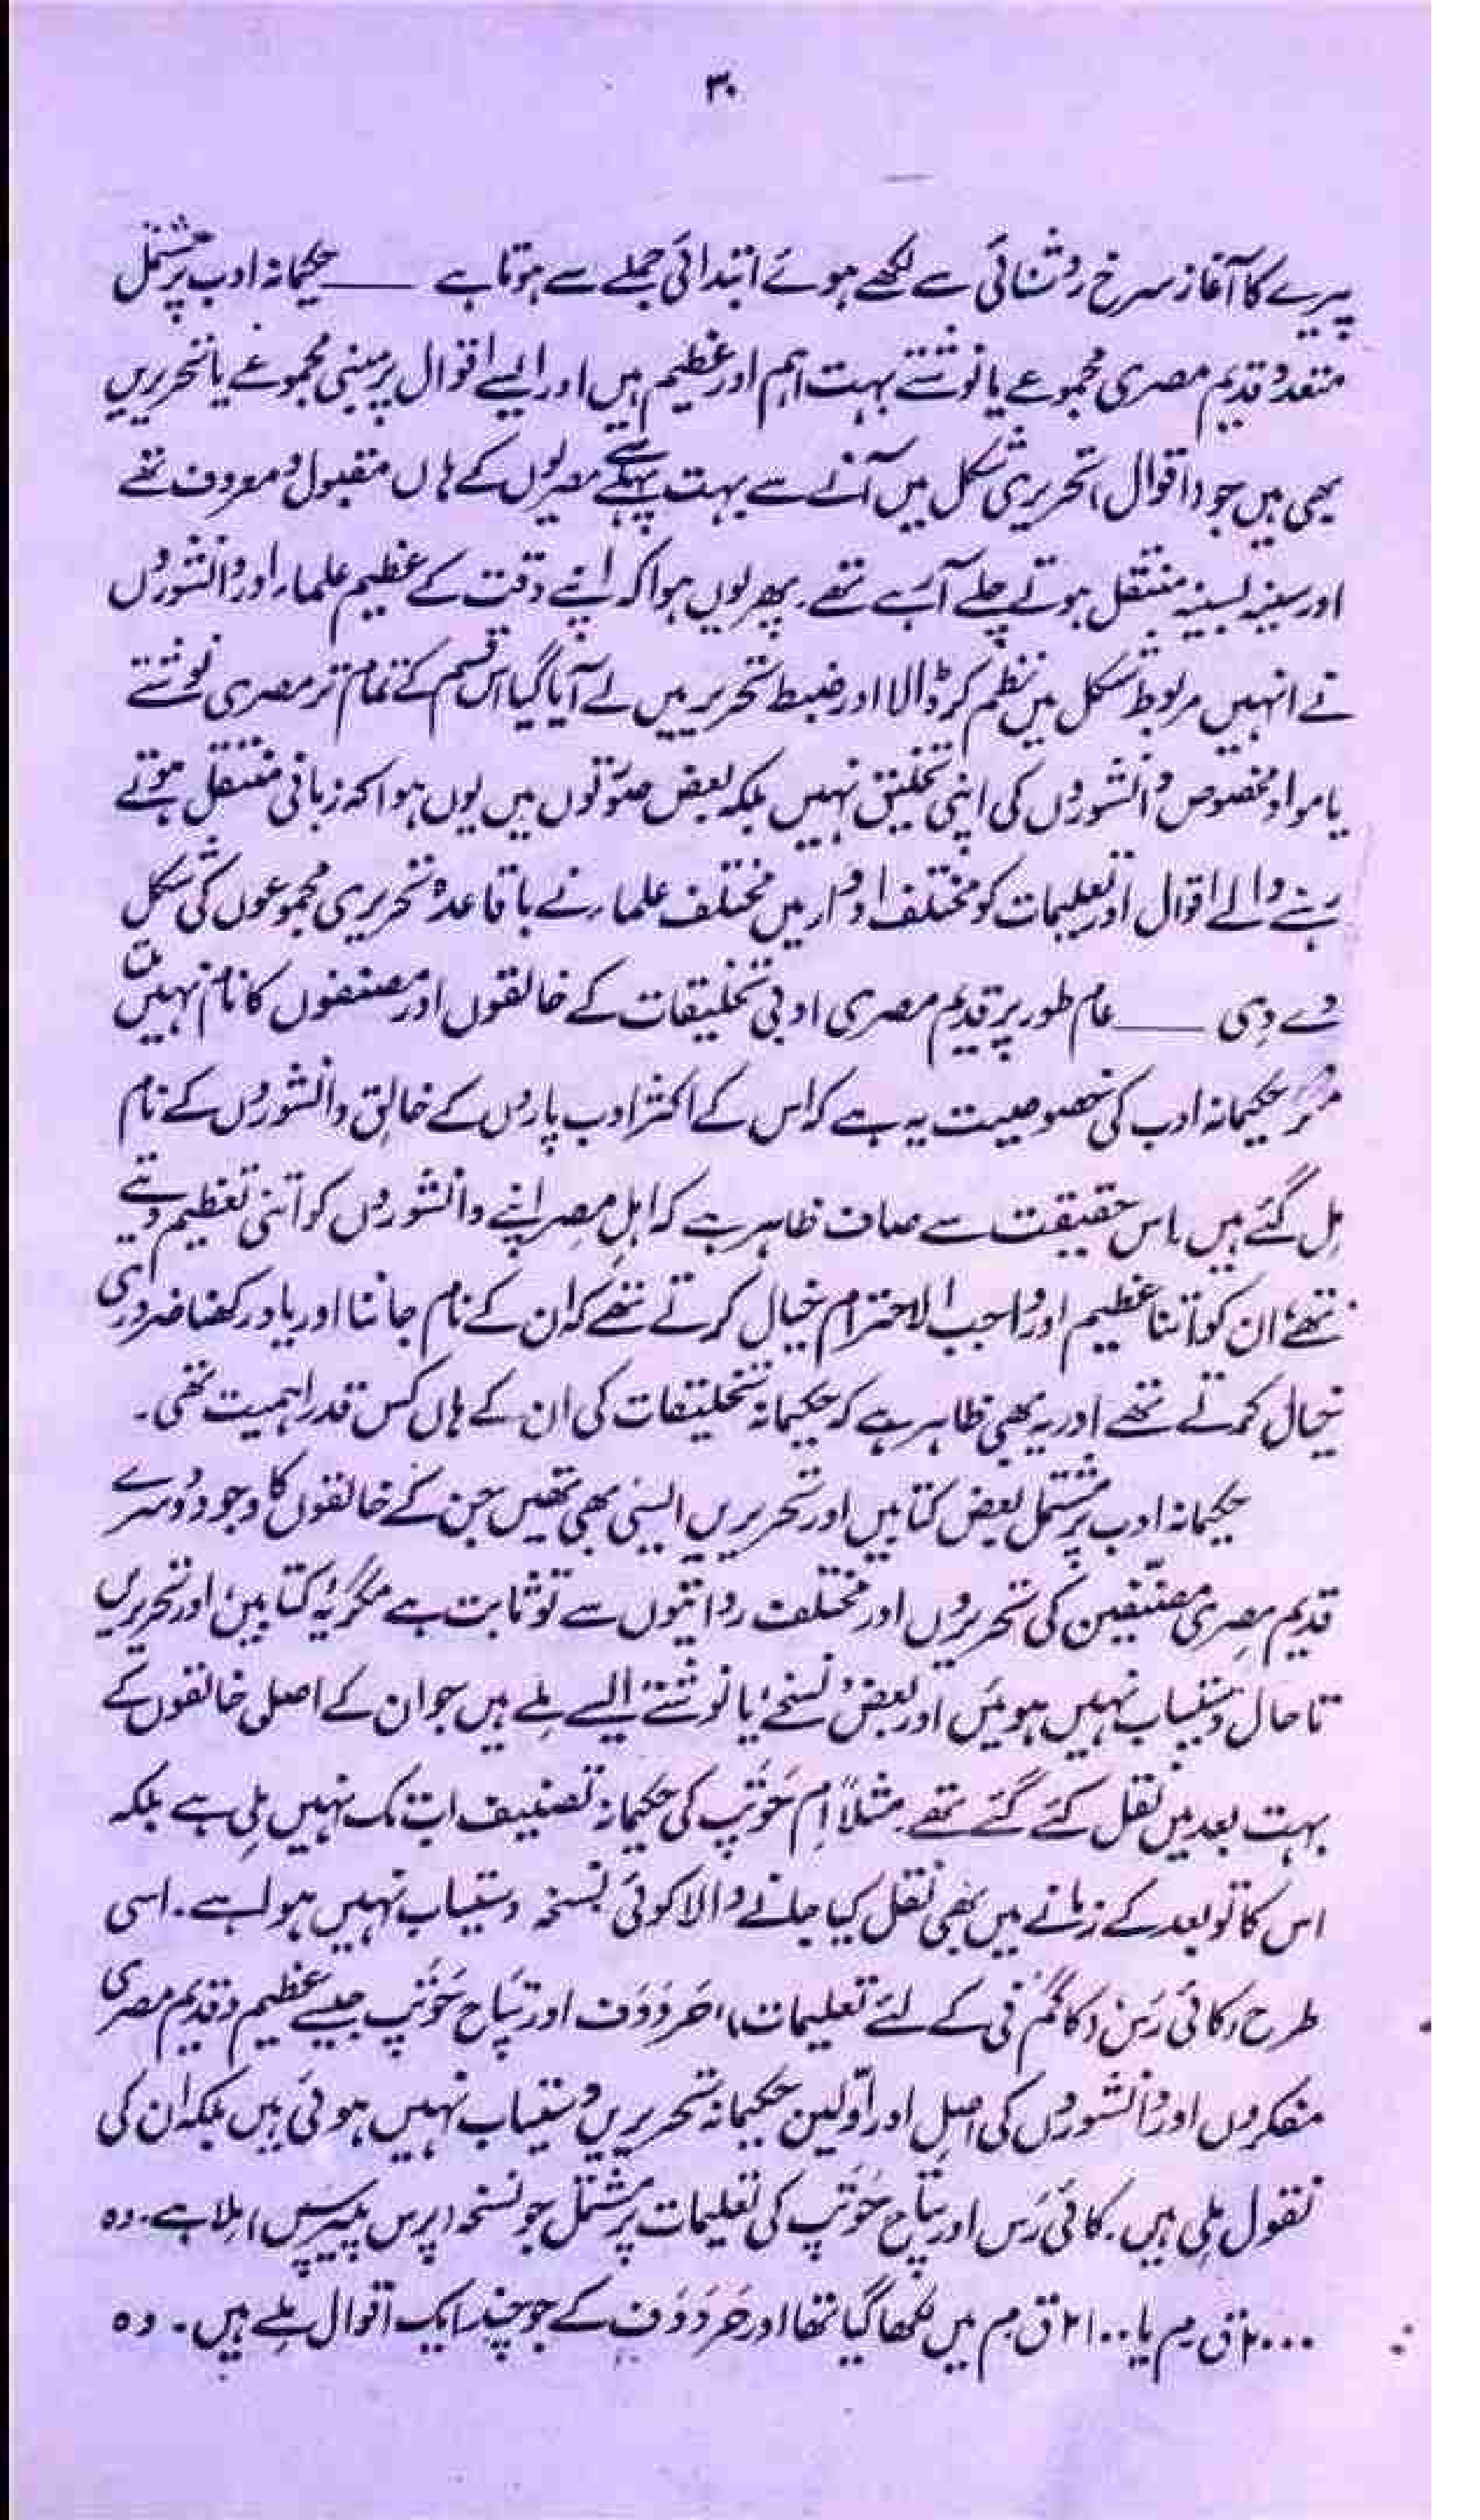 ۳۰
پیرے کا آغاز سرخ روشنائی سے لکھے ہوئے ابتدائی جملے سے ہوتا ہے ——— حکیمانہ ادب پر مشتمل
متعدد قدیم مصری مجموعے یا نوشتے بہت اہم اور عظیم ہیں اور ایسے اقوال پر مبنی مجموعے یا تحریریں
بھی ہیں جو (اقوال) تحریری شکل میں آنے سے بہت پہلے سے مصریوں کے ہاں مقبول و معروف تھے
اور سینہ بسینہ منتقل ہوتے چلے آرہے تھے۔ پھر یوں ہوا کہ اپنے وقت کے عظیم علماء اور دانشوروں
نے انہیں مربوط شکل میں نظم کر ڈالا اور ضبط تحریر میں لے آیا گیا اس قسم کے تمام تر مصری نوشتے
یا مواد مخصوص دانشوروں کی اپنی تخلیق نہیں بلکہ بعض صورتوں میں یوں ہوا کہ زبانی منتقل ہوتے
رہنے والے اقوال اور تعلیمات کو مختلف ادوار میں مختلف علماء نے باقاعدہ تحریری مجموعوں کی شکل
دے دی ——— عام طور پر قدیم مصری ادبی تخلیقات کے خالقوں اور مصنفوں کا نام نہیں ملتا
مگر حکیمانہ ادب کی خصوصیت یہ ہے کہ اس کے اکثر ادب پاروں کے خالق دانشوروں کے نام
مِل گئے ہیں۔ اس حقیقت سے صاف ظاہر ہے کہ اہلِ مصر اپنے دانشوروں کو اتنی تعظیم دیتے
تھے، ان کو اتنا عظیم اور واجب الاحترام خیال کرتے تھے کہ ان کے نام جاننا اور یاد رکھنا ضروری
خیال کرتے تھے اور یہ بھی ظاہر ہے کہ حکیمانہ تخلیقات کی ان کے ہاں کس قدر اہمیت تھی۔
حکیمانہ ادب پر مشتمل بعض کتابیں اور تحریریں ایسی بھی تھیں جن کے خالقوں کا وجود دوسرے
قدیم مِصری مصنّفین کی تحریروں اور مختلف روایتوں سے تو ثابت ہے مگر یہ کتابیں اور تحریریں
تا حال دستیاب نہیں ہوئیں اور بعض نسخے یا نوشتے ایسے ملے ہیں جو ان کے اصلی خالقوں کے
بہت بعد میں نقل کئے گئے تھے۔ مثلاً اِم حَوتَپ کی حکیمانہ تصنیف اب تک نہیں مِلی ہے بلکہ
اس کا تو بعد کے زمانے میں بھی نقل کیا جانے والا کوئی نسخہ دستیاب نہیں ہوا ہے۔ اسی
طرح کائی رَس (کاگم نی کے لئے تعلیمات)، حَردَدَف اور پتاح حَوتَپ جیسے عظیم و قدیم مصری
مفکروں اور دانشوروں کی اصل اور اوّلین حکیمانہ تحریریں دستیاب نہیں ہوئی ہیں بلکہ ان کی
نقول مِلی ہیں۔ کائی رَس اور پتاح حَوتَپ کی تعلیمات پر مشتمل جو نسخہ (پرس پیپرس) مِلا ہے۔ وہ
۲۰۰۰ ق م یا ۲۱۰۰ ق م میں لکھا گیا تھا اور حَردَدَف کے جو چند ایک اقوال مِلے ہیں۔ وہ